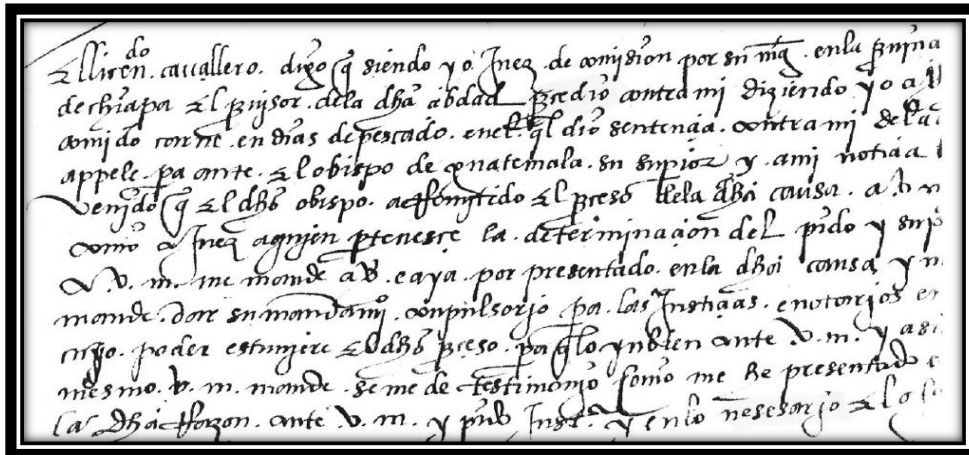 El licendo. cavallero. digo q siendo yo Juez. de comision por su mg. en la provinª
de chiapa El provisor. dela dha abdad procedio contra mi diziendo yo a
comido carne. en dias de pescado. enel ql dio sentencia. contra mi dela
appele. pa ante. El obispo de guatemala. su supior y. a mi noticia
Venido q El dho obispo. a Remytido El proceso dela dha causa. a v
como a Juez aquien pertenesce la. determinacion del pido y sup
a. v. m. me mande a v. e aya. por presentado. enla dha causa y
mande. dar su mandami. conpulsorio pa. las Justicias. e notarios en
cuyo. poder estuviere El dho proceso. pa q lo ynbien ante v. m. y asi
mesmo. v. m. mande. se me de testimonjo como me he presentado e
la dha Razon. ante. v. m. y pido Just. y enlo nesesarjo El